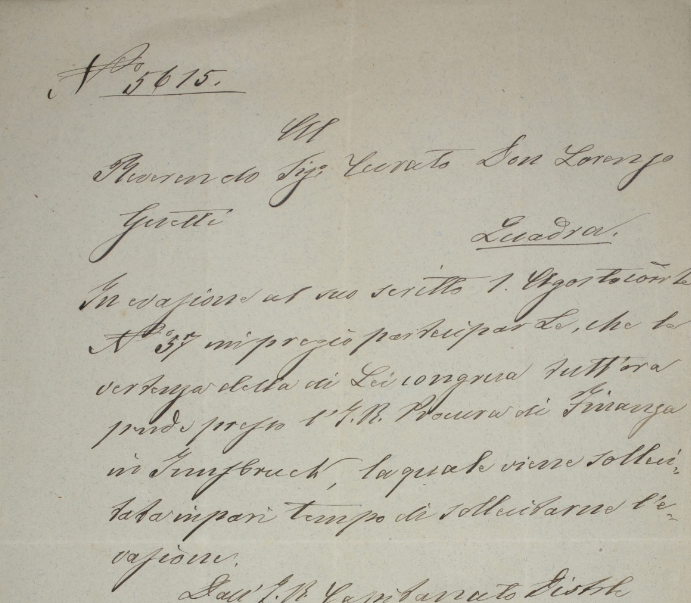 Nº 5615.
Al
Reverendo Sigr Curato Don Lorenzo
Guetti
Quadra.
In evasione al suo scritto 1. Agosto corrte
Nº 57 mi pregio parteciparLe, che la
vertenza della di Lei congrua tutt'ora
pende presso l'I. R. Procura di Finanza
in Innsbruck, la quale viene solleci=
tata in pari tempo di sollecitarne l'e=
vasione.
Dall' I. R. Capitanato Distrle